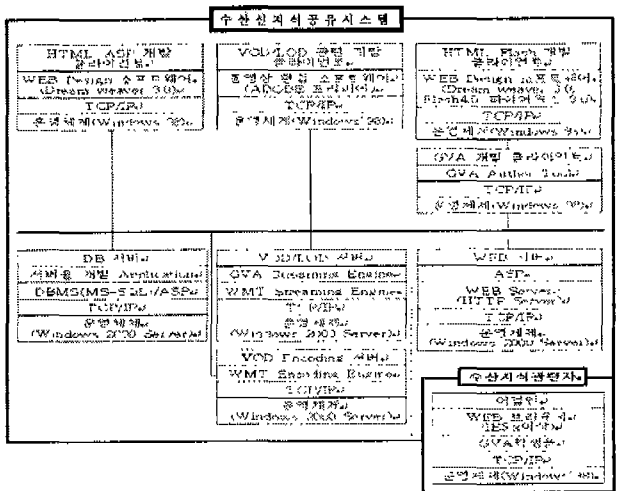 수산신지식공유시스템
HTML ASP 개발
클라이언트
WEB Design 소프트웨어
(Dream weaver 3.0)
TCP/IP
운영체제(Windows 98)
VOD/LOD 관련 개발
클라이언트
동영상 편집 소프트웨어
(ADOBE 프리미어)
TCP/IP
운영체제(Windows 98)
HTML Flash 개발
클라이언트
WEB Design 소프트웨어
(Dream weaver 3.0,
Flash4.0
TCP/IP
운영체제(Windows 98)
GVA 개발 클라이언트
GVA Author Tool
TCP/IP
운영체제(Windows 98)
DB 서버
서버용 개발 Application
DBMS(MS-SQL)/ASP
TCP/IP
운영체제
(Windows 2000 Server)
VOD/LOD 서버
GVA Streaming Engine
WMT Streaming Engine
TCP/IP
운영체제
(Windows 2000 Server)
VOD Encoding 서버
WMT Encoding Engine
TCP/IP
운영체제
(Windows 2000 Server)
WEB 서버
ASP
WEB Server
(HTTP Server)
TCP/IP
운영체제
(Windows 2000 Server)
수산지식관련자
어업인
WEB 브라우저
GVA
TCP/IP
운영체제(Windows 98)